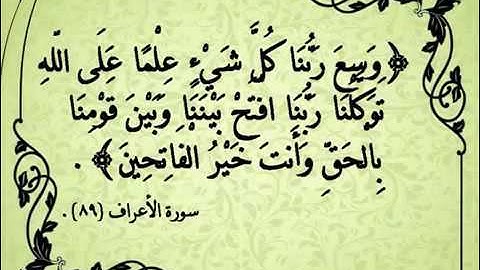 ﴿وَسِعَ رَبُّنَا كُلَّ شَيْءٍ عِلْمًا عَلَى اللَّهِ
تَوَكَّلْنَا رَبَّنَا افْتَحْ بَيْنَنَا وَبَيْنَ قَوْمِنَا
بِالْحَقِّ وَأَنتَ خَيْرُ الْفَاتِحِينَ﴾ .
سورة الأعراف (٨٩) .